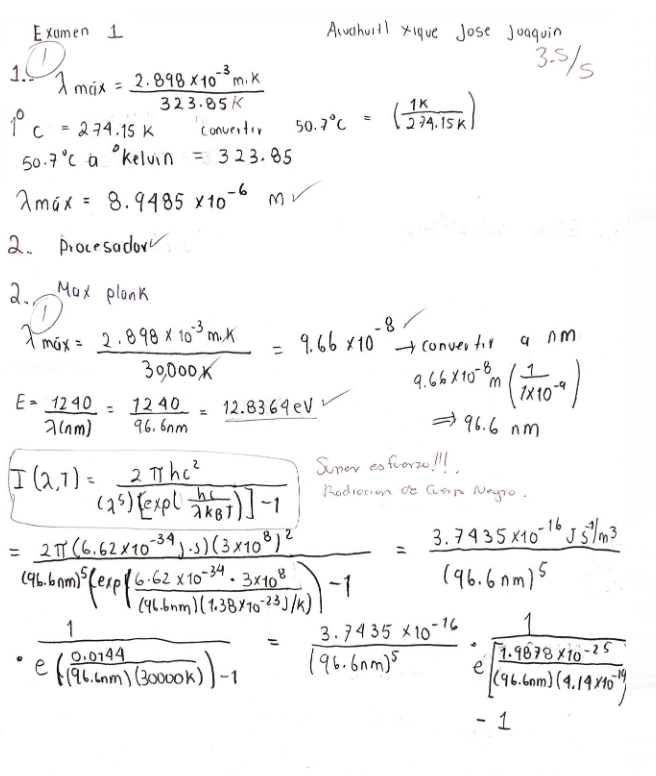 Examen 1
Alvahuitl Xique Jose Joaquin
3.5/5
1
1. λ máx = 2.898 x 10^-3 m.K / 323.85 K
1°C = 274.15 K convertir 50.7°C = (1K / 274.15K)
50.7°C a °kelvin = 323.85
λmáx = 8.9485 x10^-6 m ✓
2. Procesador ✓
2. Max plank
1
λ máx = 2.898 x 10^-3 m.K / 30,000 K = 9.66 x10^-8 ✓ → convertir a nm
9.66x10^-8 m (1 / 1x10^-9)
⇒ 96.6 nm
E = 1240 / λ(nm) = 1240 / 96.6nm = 12.8364 eV ✓
I(λ,T) = 2πhc^2 / (λ^5)[exp(hc / λkBT)] -1
Super esfuerzo!!!.
Radiacion de Cuerpo Negro.
= 2π(6.62x10^-34 j.s)(3x10^8)^2 / (96.6nm)^5 [exp(6.62x10^-34 · 3x10^8 / (96.6nm)(1.38x10^-23 J/K)) -1 = 3.7435x10^-16 J s^-1/m^3 / (96.6 nm)^5
· 1 / e(0.0144 / (96.6nm)(30000K)) -1 = 3.7435 x10^-16 / (96.6nm)^5 · 1 / e[1.9878 x10^-25 / (96.6nm)(4.14x10^-19)
- 1